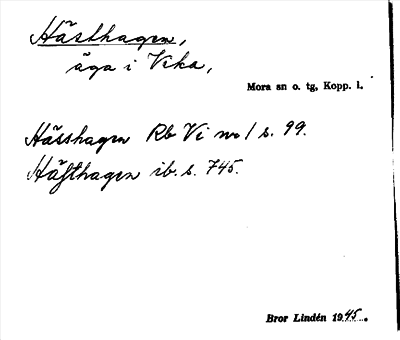 Hästhagen,
äga i Vika,
Mora sn o. tg, Kopp. l.
Hässhagen Rb Vi no 1 s. 99.
Häfthagen ib. s. 745.
Bror Lindén 1945.